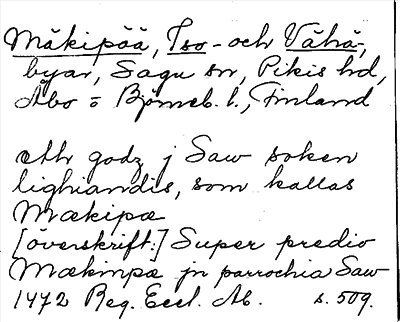 Mäkipää, Iso- och Vähä-,
byar, Sagu sn, Pikis hd,
Åbo o Björneb. l., Finland
ath godz j Saw soken
lighiandis, som kallas
Mækipæ
[överskrift:] Super predio
Mækinpæ jn parrochia Saw
1472 Reg. Eccl. Ab. s. 509.